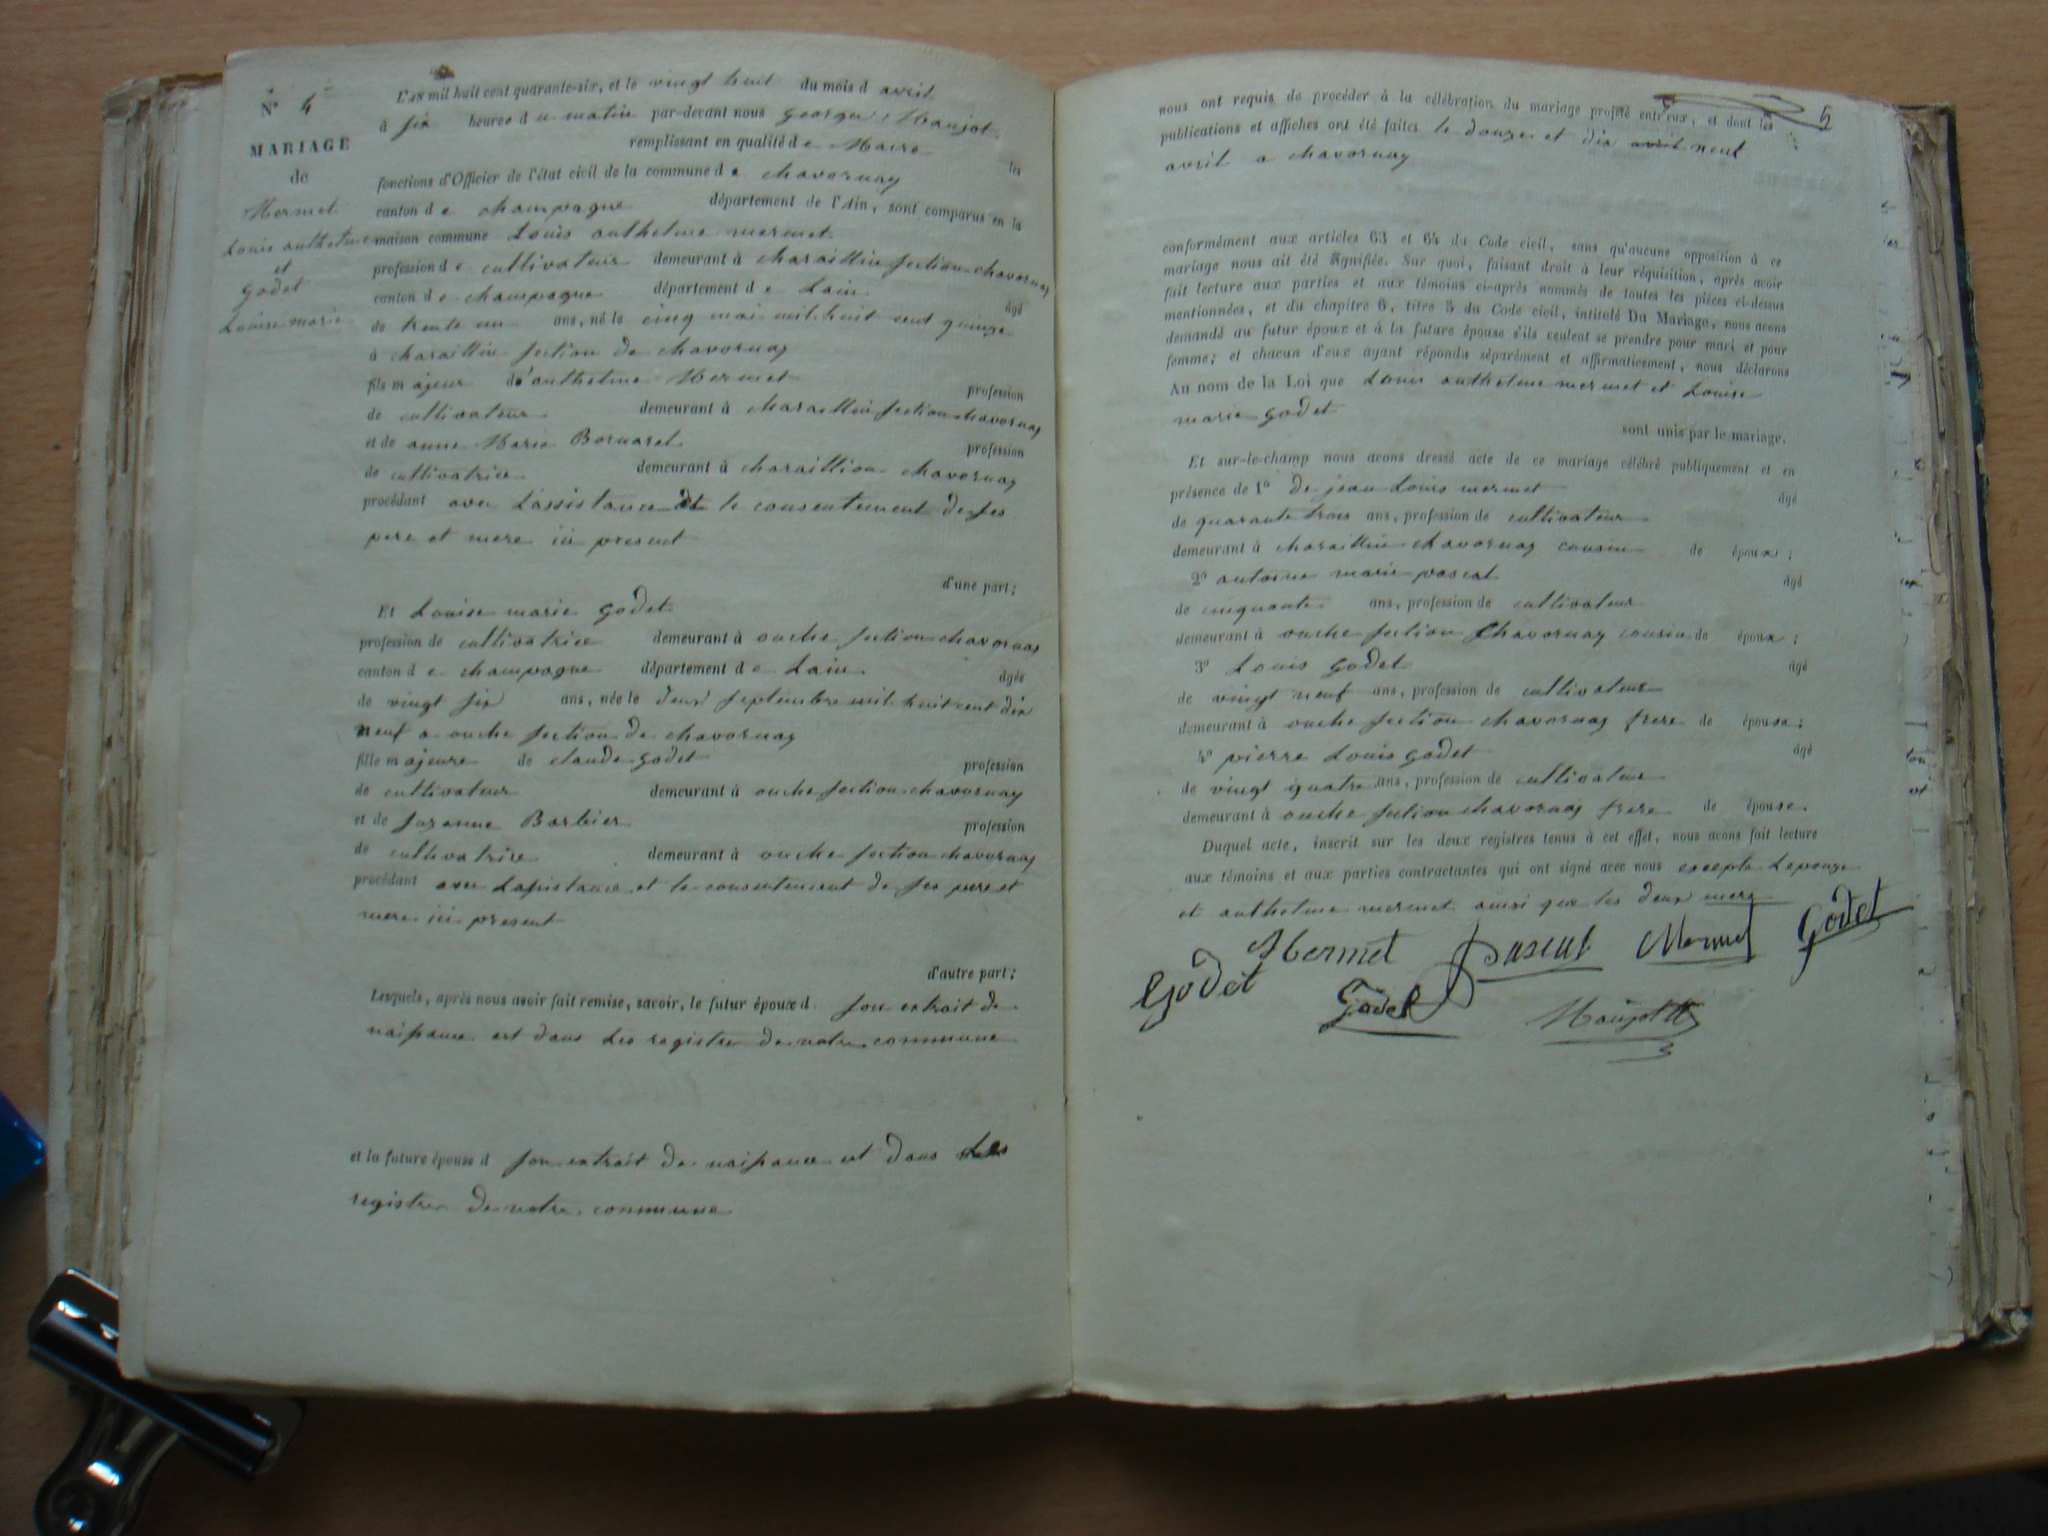 N° 4
MARIAGE
de
Mermet
Louis anthelme
et
Godet
Louise marie
L'an mil huit cent quarante-six, et le vingt huit du mois d avril
à six heures du matin par-devant nous george Maujot
remplissant en qualité de Maire les
fonctions d'Officier de l'état civil de la commune de chavornay
canton de champagne département de l'Ain, sont comparus en la
maison commune Louis anthelme mermet
profession de cultivateur demeurant à charaillin section chavornay
canton de champagne département de Lain âgé
de trente un ans, né le cinq mai mil huit cent quinze
à charaillin section de chavornay
fils majeur de anthelme Mermet profession
de cultivateur demeurant à charaillin section chavornay
et de anne Marie Bornarel profession
de cultivatrice demeurant à charaillin chavornay
procédant avec Lassistance et le consentement de ses
pere et mere ici present
d'une part;
Et Louise marie Godet
profession de cultivatrice demeurant à ouche section chavornay
canton de champagne département de Lain âgée
de vingt six ans, née le deux septembre mil huit cent dix
neuf a ouche section de chavornay
fille majeure de claude godet profession
de cultivateur demeurant à ouche section chavornay
et de suzanne Barbier profession
de cultivatrise demeurant à ouche section chavornay
procédant avec Lassistance et le consentement de ses pere et
mere ici present
d'autre part;
Lesquels, après nous avoir fait remise, savoir, le futur époux d son extrait de
naissance est dans les registre de notre commune
et la future épouse d son extrait de naissance est dans Les
registre de notre commune
5
nous ont requis de procéder à la célébration du mariage projeté entr'eux, et dont les
publications et affiches ont été faites le douze et dix avril neuf
avril a chavornay
conformément aux articles 63 et 64 du Code civil, sans qu'aucune opposition à ce
mariage nous ait été signifiée. Sur quoi, faisant droit à leur réquisition, après avoir
fait lecture aux parties et aux témoins ci-après nommés de toutes les pièces ci-dessus
mentionnées, et du chapitre 6, titre 5 du Code civil, intitulé Du Mariage, nous avons
demandé au futur époux et à la future épouse s'ils veulent se prendre pour mari et pour
femme; et chacun d'eux ayant répondu séparément et affirmativement, nous déclarons
Au nom de la Loi que Louis anthelme mermet et Louise
marie godet
sont unis par le mariage.
Et sur-le-champ nous avons dressé acte de ce mariage célébré publiquement et en
présence de 1° de jean Louis mermet âgé
de quarante trois ans, profession de cultivateur
demeurant à charaillin chavornay cousin de époux;
2° antoine marie pascal âgé
de cinquante ans, profession de cultivateur
demeurant à ouche section chavornay cousin de époux;
3° Louis Godet âgé
de vingt neuf ans, profession de cultivateur
demeurant à ouche section chavornay frere de épouse;
4° pierre Louis godet âgé
de vingt quatre ans, profession de cultivateur
demeurant à ouche section chavornay frere de épouse.
Duquel acte, inscrit sur les deux registres tenus à cet effet, nous avons fait lecture
aux témoins et aux parties contractantes qui ont signé avec nous excepte Lepouze
et anthelme mermet ainsi que les deux mere
Mermet pascal Mermet Godet
Godet Godet Maujot